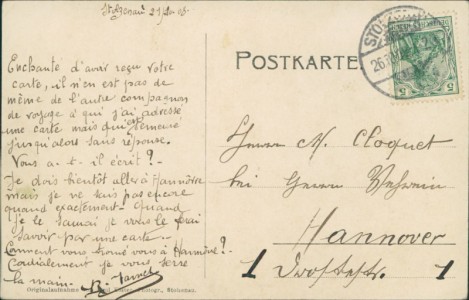 Stolzenau
Enchanté d'avoir reçu votre
carte, il n'en est pas de
même de l'autre compagnon
de voyage à qui j'ai adressé
une carte mais qui est demeuré
jusqu'alors sans réponse.
Vous a-t-il écrit?-
Je dois bientôt aller à Hannovre
mais je ne sais pas encore
quand exactement. Quand
je le saurai je vous le ferai
savoir par une carte
Comment vous trouvez vous à Hannovre?
Cordialement je vous serre
la main.
Originalaufnahme Photogr., Stolzenau.
POSTKARTE
5 5
Herrn M. Cloquet
bei Herrn
Hannover
1 1